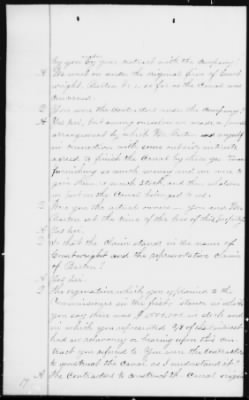 by you under your contract with the Company?
A We went on under the original firm of Court-
wright, Barton & Co. so far as the Canal was
concerned.
Q You were the contractors under the Company?
A Yes sir, but among ourselves we made a
arrangement by which Mr. Barton and myself
in connection with some outside interests
agreed to finish the Canal by their
furnishing so much money and we were to
give them so much stock, and then
on before the Canal being
Q Was you the actual owners you and Mr.
Barton at the time of the loss of this property?
A Yes sir.
Q So that the claim stands in the name of
Courtwright and the representative claim
of Barton?
A Yes sir.
Q The organization which you explained to the
Commissioners in the first place in which
you say there was $1,500,000 in stock and
in which you represented 3/8 of the contract
had no relevancy or bearing upon this con-
tract you referred to. You were the contractors
to construct the Canal as I understand it?
A The Contractors to construct the Canal
17